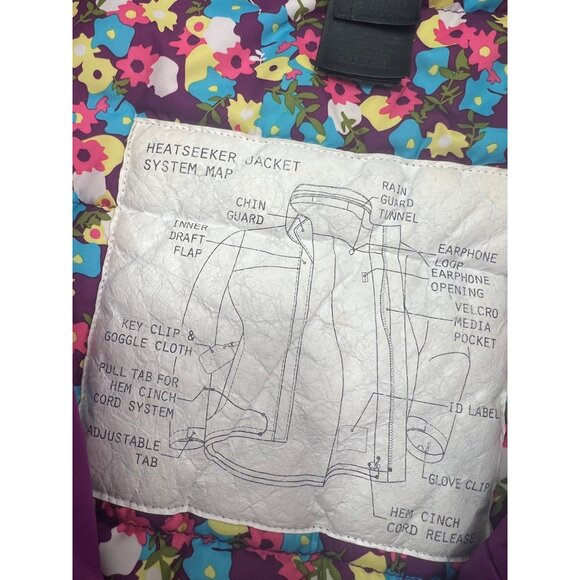 HEATSEEKER JACKET
SYSTEM MAP
RAIN
GUARD
TUNNEL
CHIN
GUARD
INNER
DRAFT
FLAP
EARPHONE
LOOP
EARPHONE
OPENING
VELCRO
MEDIA
POCKET
KEY CLIP &
GOGGLE CLOTH
PULL TAB FOR
HEM CINCH
CORD SYSTEM
ID LABEL
ADJUSTABLE
TAB
GLOVE CLIP
HEM CINCH
CORD RELEASE